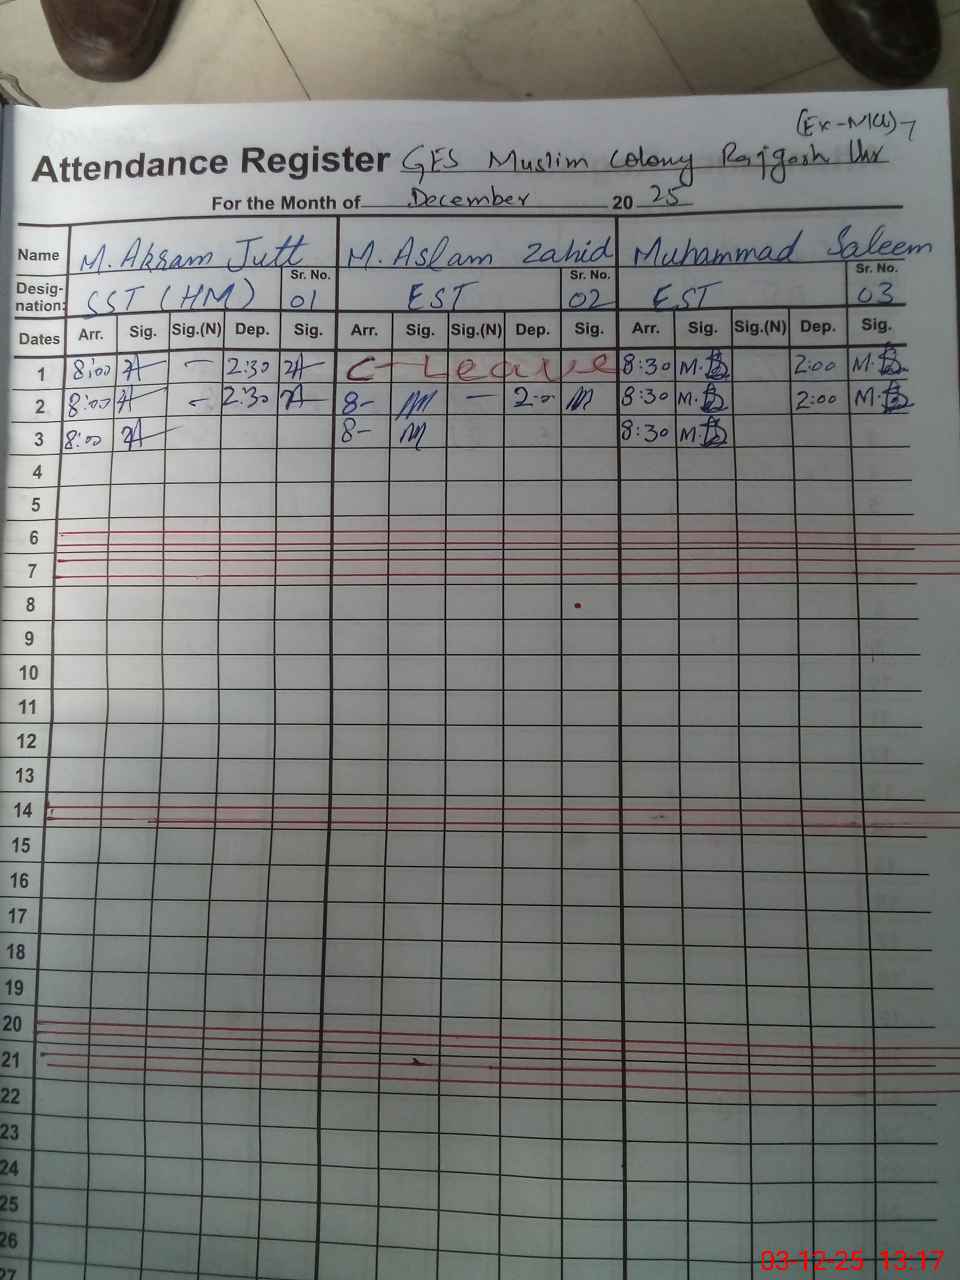 (Ex-MCL)
Attendance Register GES Muslim Colony Rajgarh Lhr
For the Month of December 20 25
Name M. Akram Jutt M. Aslam Zahid Muhammad Saleem
Desig-nation: SST (HM) Sr. No. 01 EST Sr. No. 02 EST Sr. No. 03
Dates Arr. Sig. Sig.(N) Dep. Sig. Arr. Sig. Sig.(N) Dep. Sig. Arr. Sig. Sig.(N) Dep. Sig.
1 8:00 - 2:30 C-Leave 8:30 2:00
2 8:00 - 2:30 8- - 2:0 8:30 2:00
3 8:00 8- 8:30
4
5
6
7
8
9
10
11
12
13
14
15
16
17
18
19
20
21
22
23
24
25
26
27
03-12-25 13:17